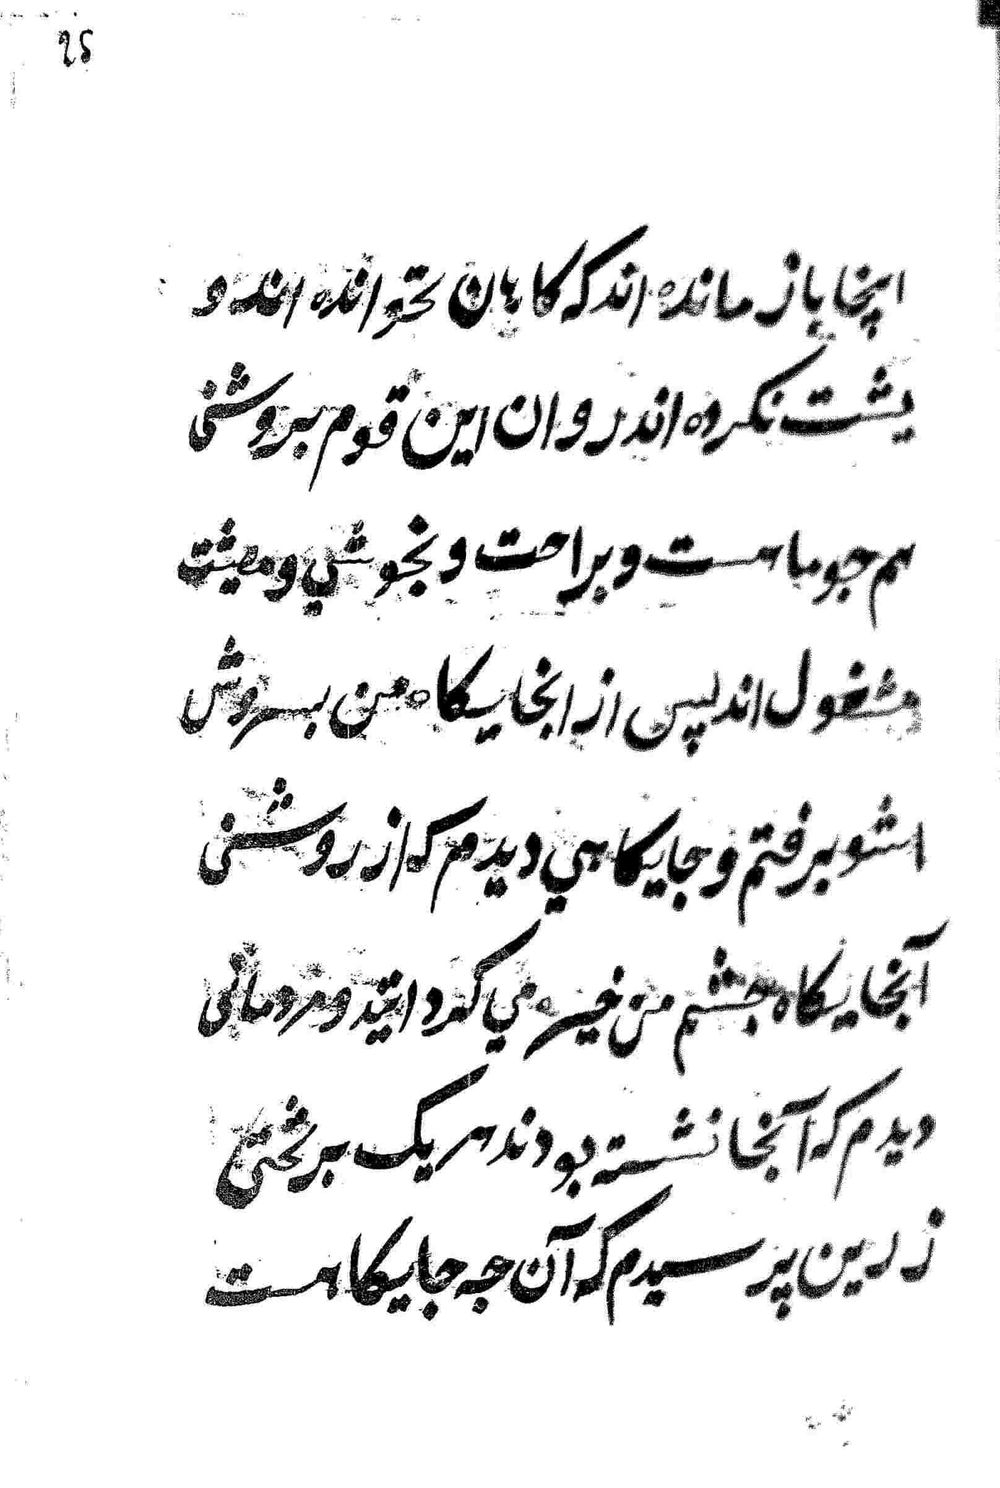 25
اینجا باز مانده اند که کاهان نخوانده اند و
یشت نکرده اند روان این قوم بروشنی
هم جو ماهست و براحت و بخوشی و
مشغول اند پس از انجایکاه من بسروش
اشو برفتم و جایکاهی دیدم که از روشنی
آنجایکاه جشم من خیره می کردانید و مردمانی
دیدم که آنجا نشسته بودند هر یک بر تختی
زرین پرسیدم که آن جه جایکاهست